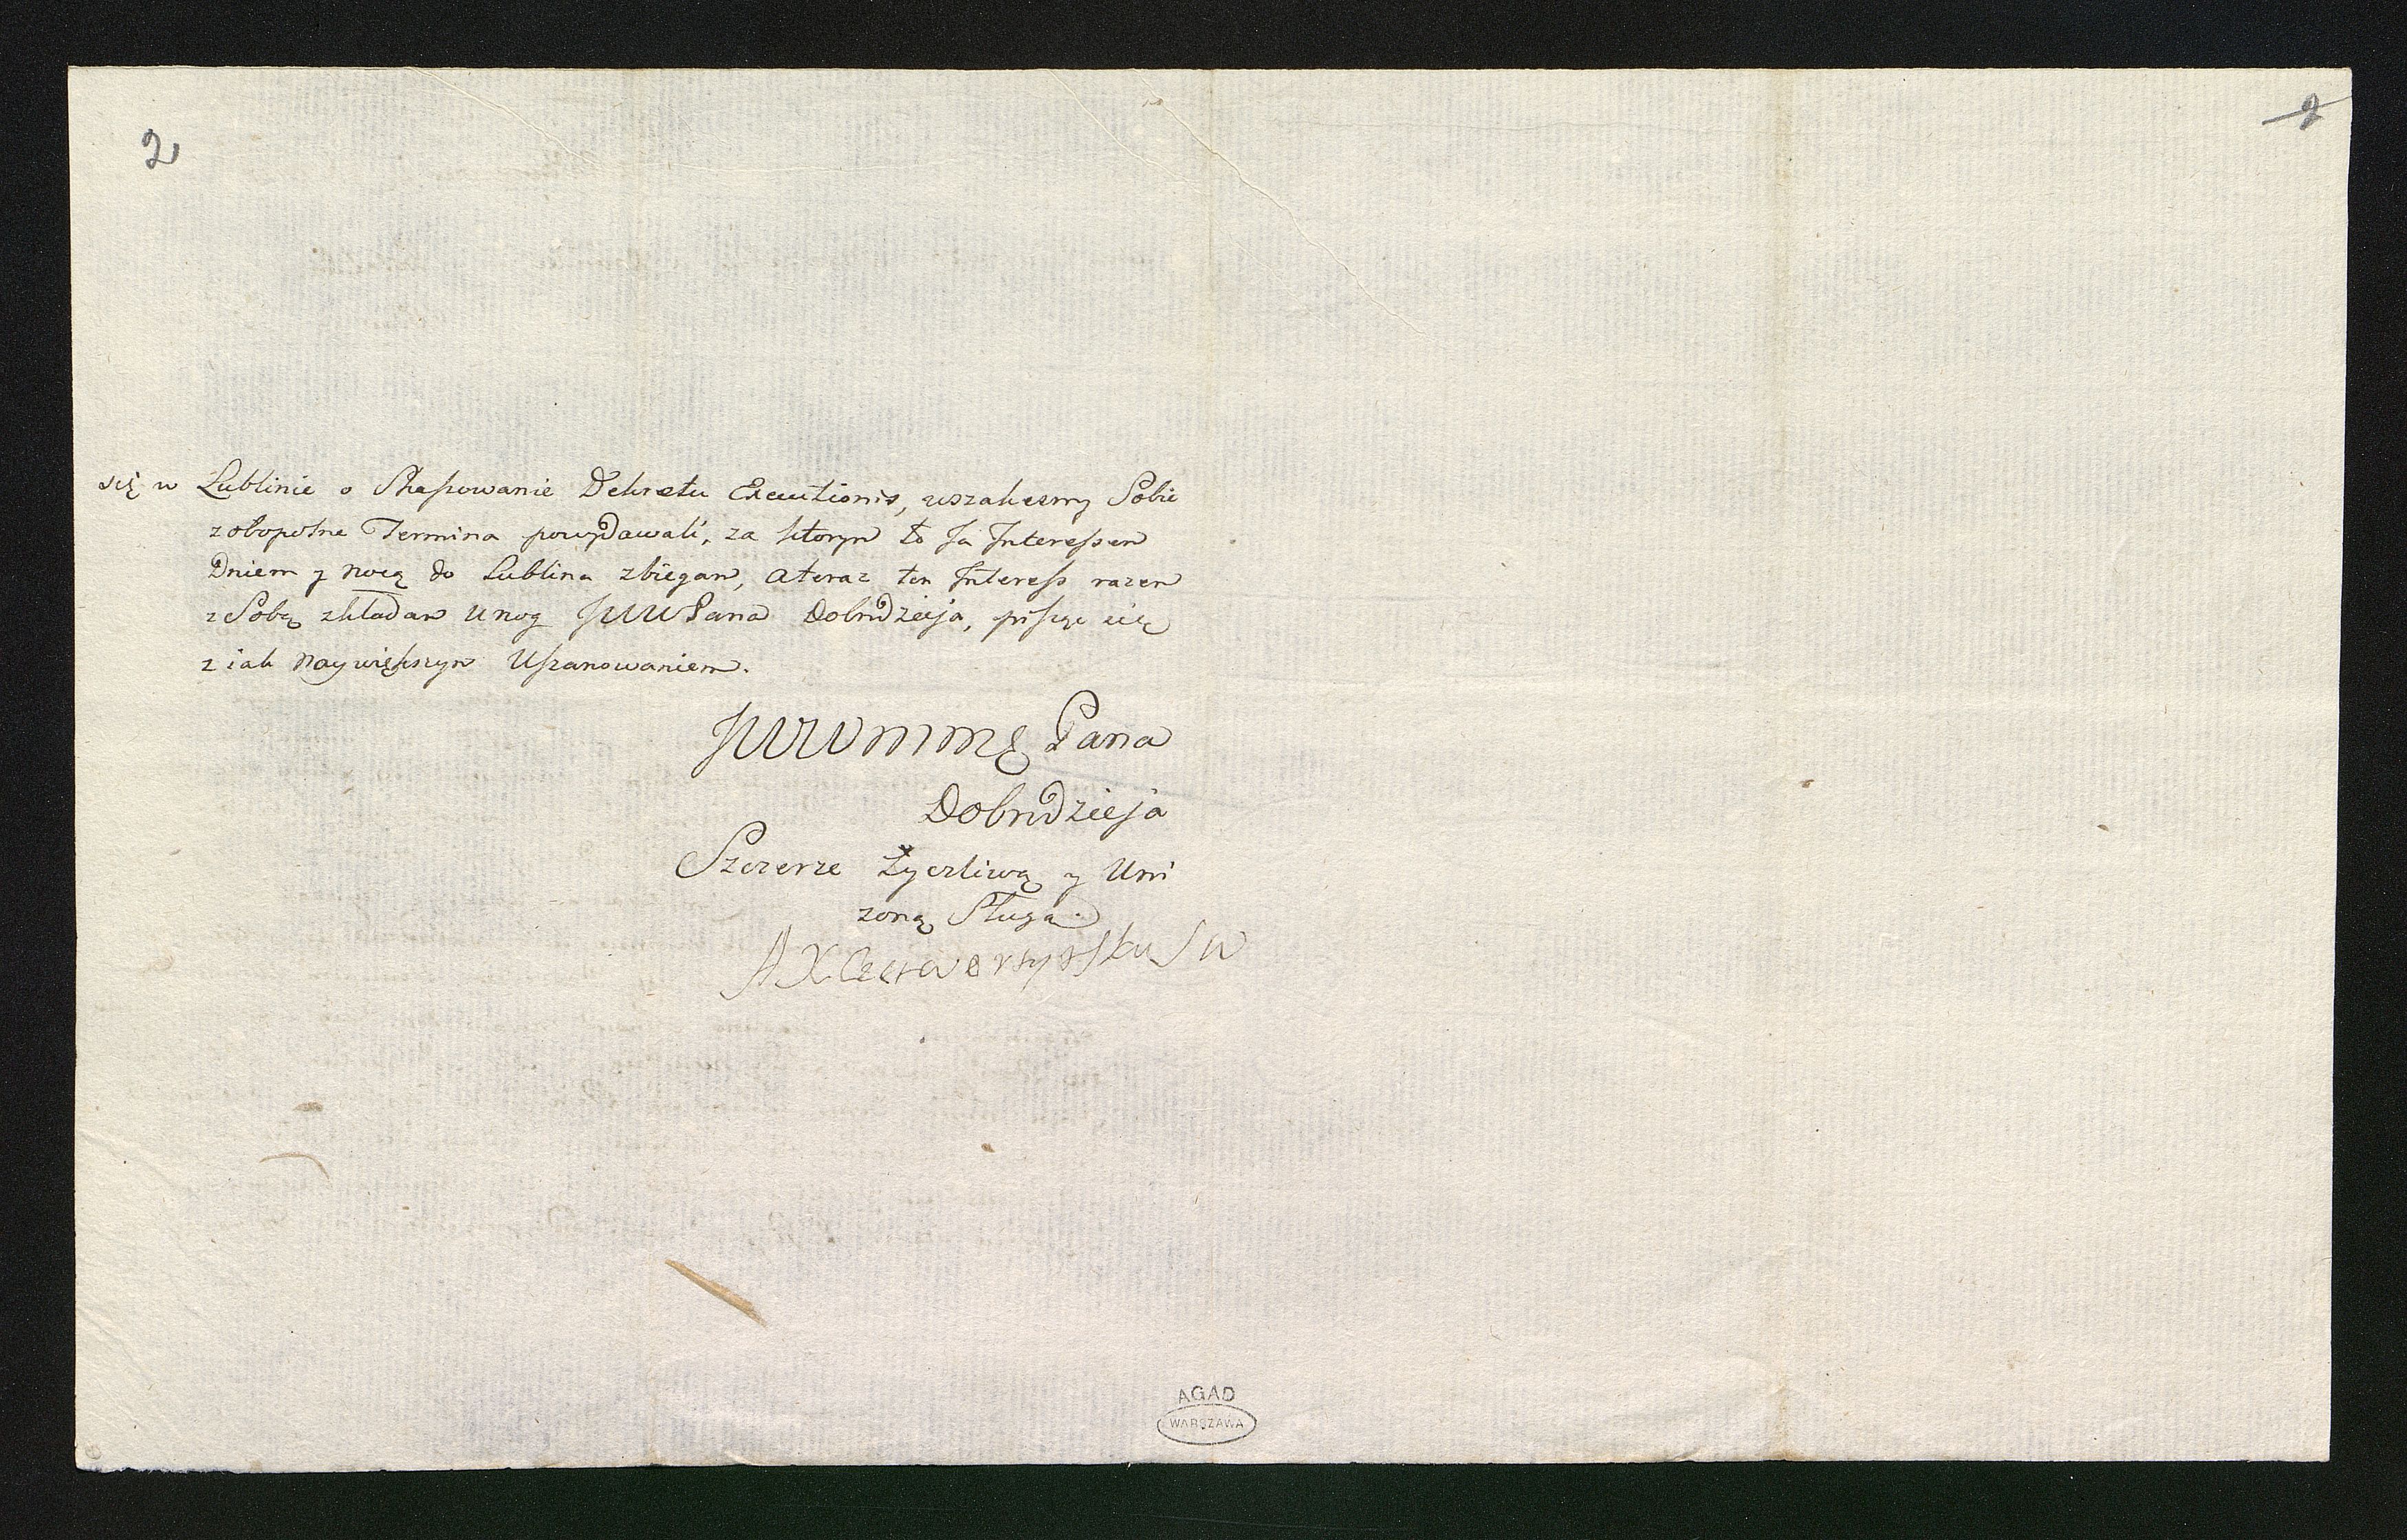 2
2
się w Lublinie o Skassowanie Dekretu Executionis, wszakesmy Sobie
zobopolne Termina powydawali, za ktorym to Ja Interessem
Dniem y nocą do Lublina zbiegam, ateraz ten Interess razem
z Sobą zkładam unog JWW Pana Dobrodzieja, piszę się
z iak naywiększym Uszanowaniem.
JWWMMę Pana
Dobrodzieja
Szczerze Życzliwą y Uni
zoną Sługą.
AX
AGAD
WARSZAWA